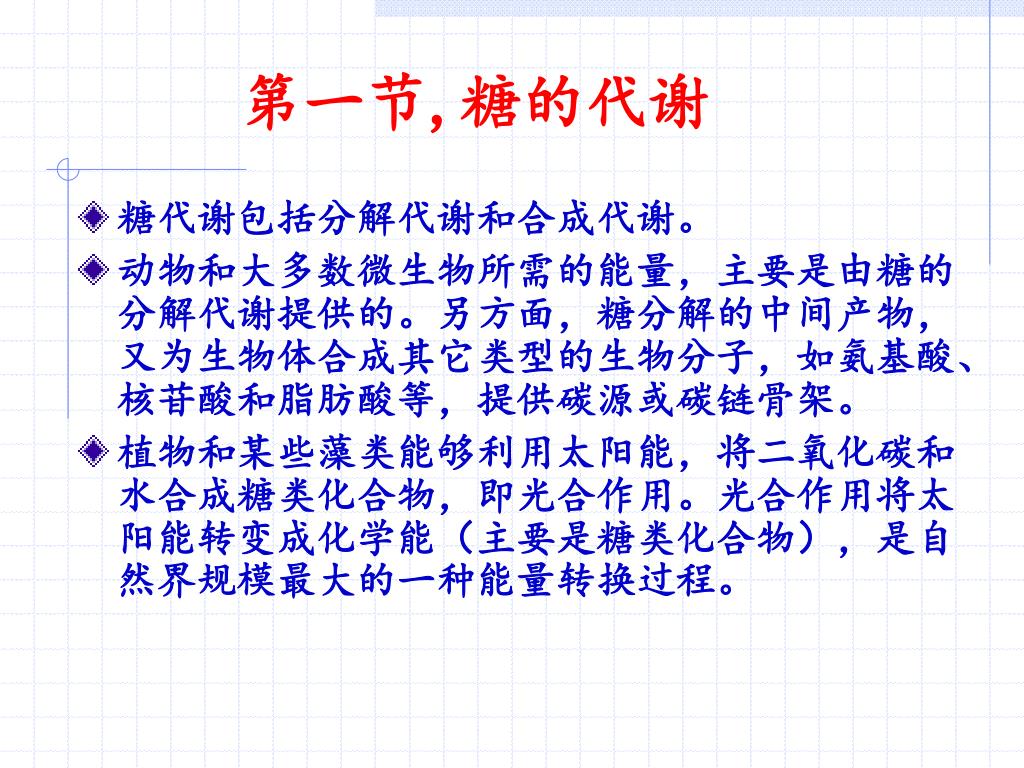 第一节,糖的代谢
糖代谢包括分解代谢和合成代谢。
动物和大多数微生物所需的能量，主要是由糖的
分解代谢提供的。另方面，糖分解的中间产物，
又为生物体合成其它类型的生物分子，如氨基酸、
核苷酸和脂肪酸等，提供碳源或碳链骨架。
植物和某些藻类能够利用太阳能，将二氧化碳和
水合成糖类化合物，即光合作用。光合作用将太
阳能转变成化学能（主要是糖类化合物），是自
然界规模最大的一种能量转换过程。